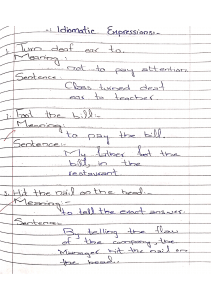 Idiomatic Expressions:-
1. Turn deaf ear to.
Meaning:-
not to pay attention.
Sentence
Class turned deaf
ear to teacher
2. Foot the bill:-
Meaning:-
to pay the bill.
Sentence:-
My father foot the
bill, in the
restaurant
3. Hit the nail on the head:-
Meaning:-
to tell the exact answer.
Sentence:-
By telling the flaw
of the company, the
Manager hit the nail on
the head.